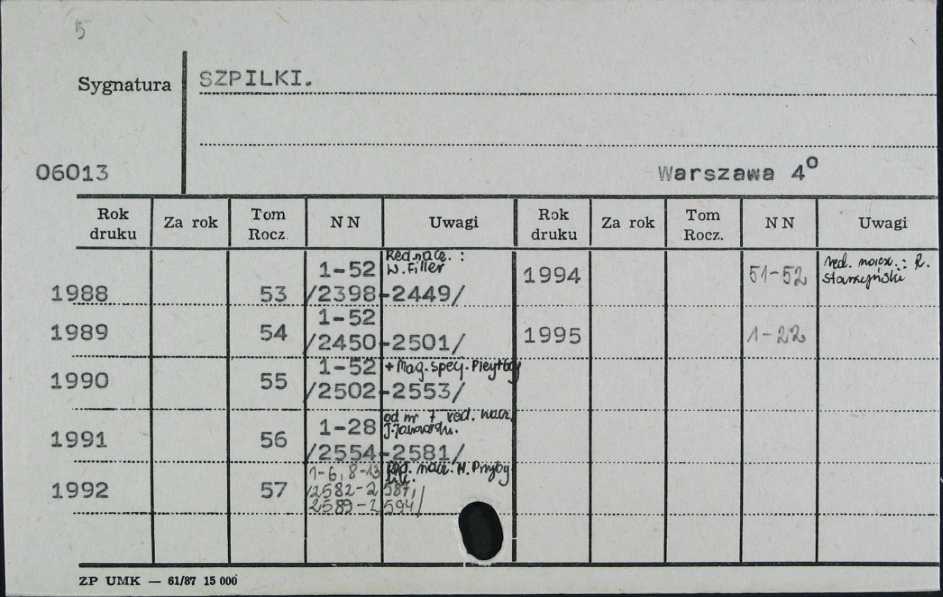 5
Sygnatura SZPILKI.
06013 Warszawa 4°
Rok druku Za rok Tom Rocz. N N Uwagi Rok druku Za rok Tom Rocz. N N Uwagi
1988 53 1-52 /2398-2449/ Red.nacz.: W. Filler 1994 51-52 red. nacz.: R. Stamyński
1989 54 1-52 /2450-2501/ 1995 1-22
1990 55 1-52 /2502-2553/ + Mag. specj.
1991 56 1-28 /2554-2581/ od nr 7 red. nacz. J.
1992 57 1-6, 8-13 /2582-2587, 2589-2594/ Red. nacz. W.
ZP UMK — 61/87 15 000